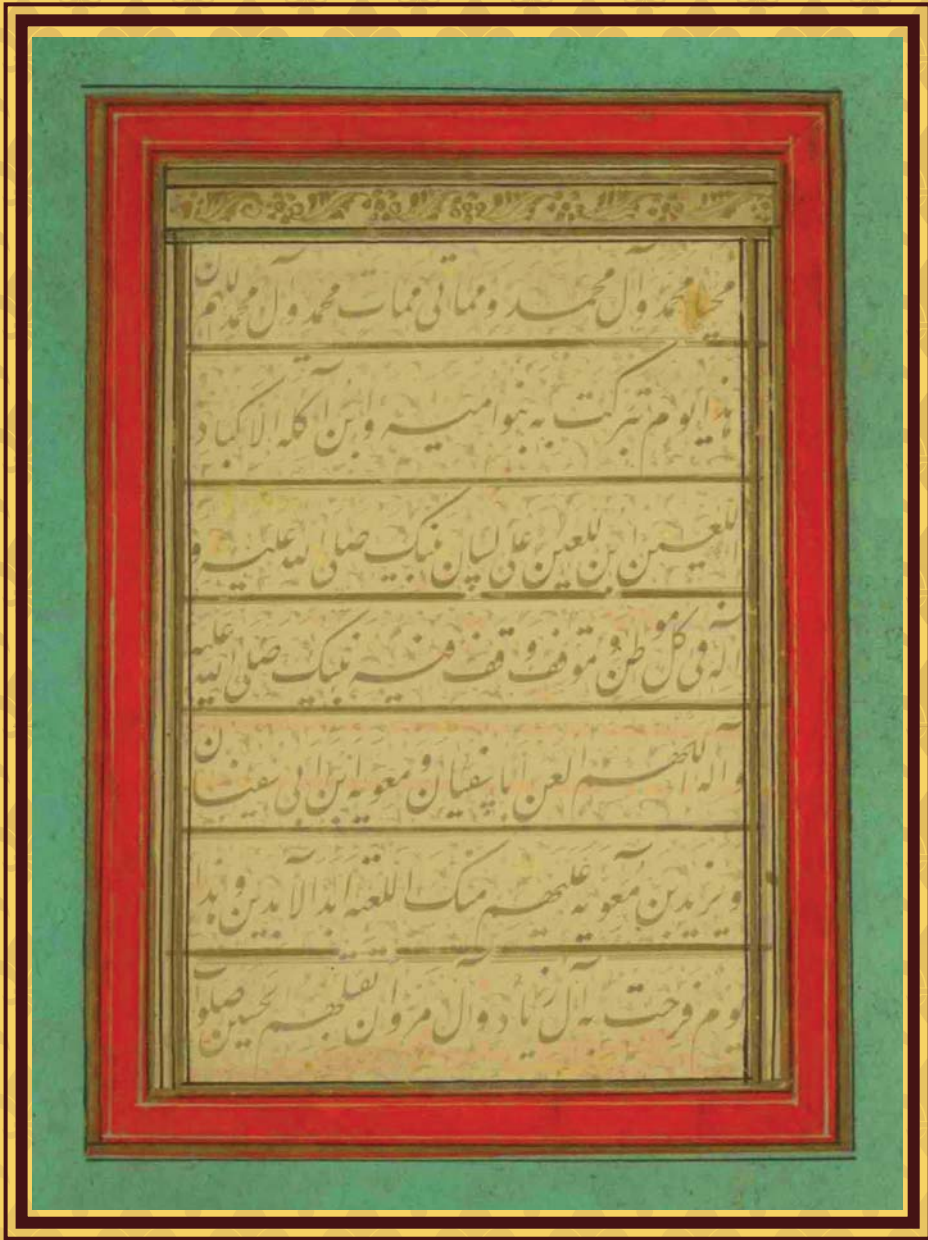 محیا محمد وآل محمد ومماتی ممات محمد وآل محمد اللهم ان
هذا یوم تبرکت به بنو امیه وابن آکله الاکباد
اللعین ابن اللعین علی لسان نبیک صلی الله علیه و
آله فی کل موطن وموقف وقف فیه نبیک صلی الله علیه
وآله اللهم العن اباسفیان ومعویه ابن ابی سفیان
ویزید بن معویه علیهم منک اللعنه ابد الآبدین وهذا
یوم فرحت به آل زیاد وآل مروان بقتلهم الحسین صلوات